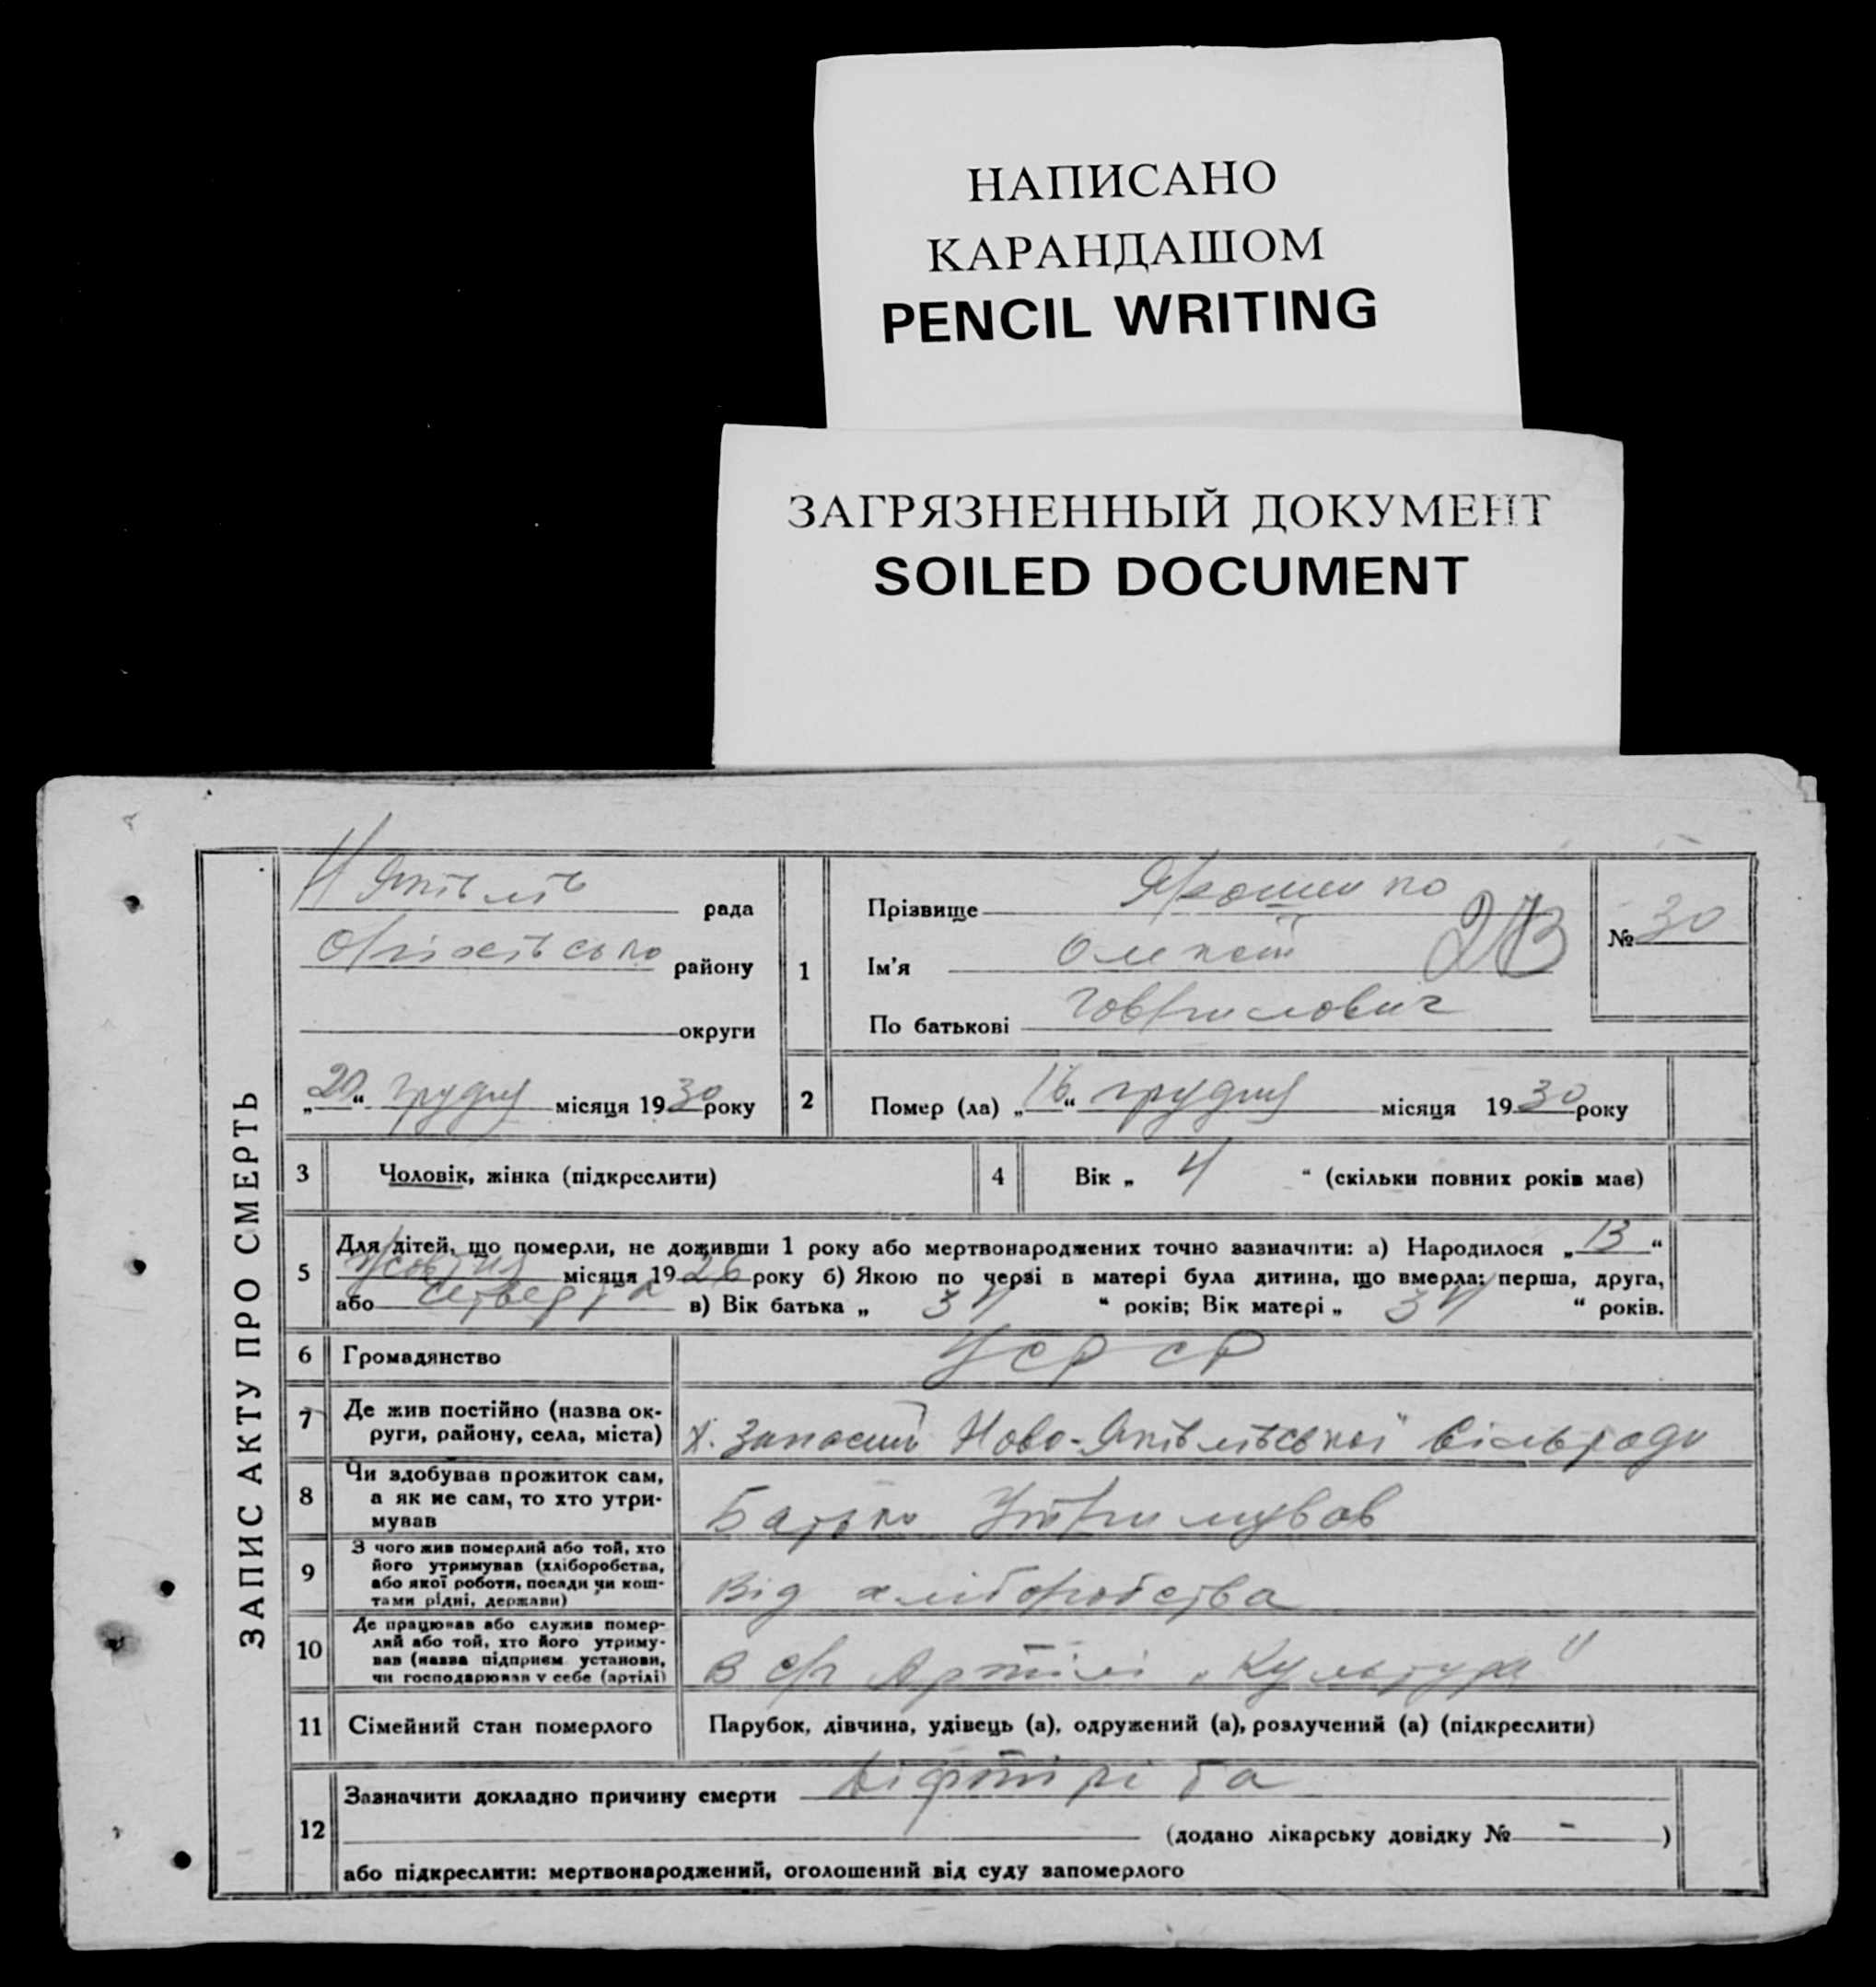 НАПИСАНО
КАРАНДАШОМ
PENCIL WRITING
ЗАГРЯЗНЕННЫЙ ДОКУМЕНТ
SOILED DOCUMENT
ЗАПИС АКТУ ПРО СМЕРТЬ
рада
району
округи
„20“ грудня місяця 1930 року
1
Прізвище
Ім'я
По батькові
№ 30
2
Помер (ла) „16“ грудня місяця 1930 року
3 Чоловік, жінка (підкреслити)
4 Вік „ 4 “ (скільки повних років має)
5 Для дітей, що померли, не доживши 1 року або мертвонароджених точно зазначити: а) Народилося „13“
жовтня місяця 1926 року б) Якою по черзі в матері була дитина, що вмерла: перша, друга,
або четверта в) Вік батька „ 34 “ років; Вік матері „ 34 “ років.
6 Громадянство УСРСР
7 Де жив постійно (назва ок-
руги, району, села, міста) Ново-Яківлівської сільради
8 Чи здобував прожиток сам,
а як не сам, то хто утри-
мував Батько Утримував
9 З чого жив померлий або той, хто
його утримував (хліборобства,
або якої роботи, посади чи кош-
тами рідні, держави) Від хліборобства
10 Де працював або служив помер-
лий або той, хто його утриму-
вав (назва підприєм. установи,
чи господарював у себе (артілі) В с/г Артілі „Культура“
11 Сімейний стан померлого Парубок, дівчина, удівець (а), одружений (а), розлучений (а) (підкреслити)
12 Зазначити докладно причину смерти
(додано лікарську довідку № - )
або підкреслити: мертвонароджений, оголошений від суду запомерлого